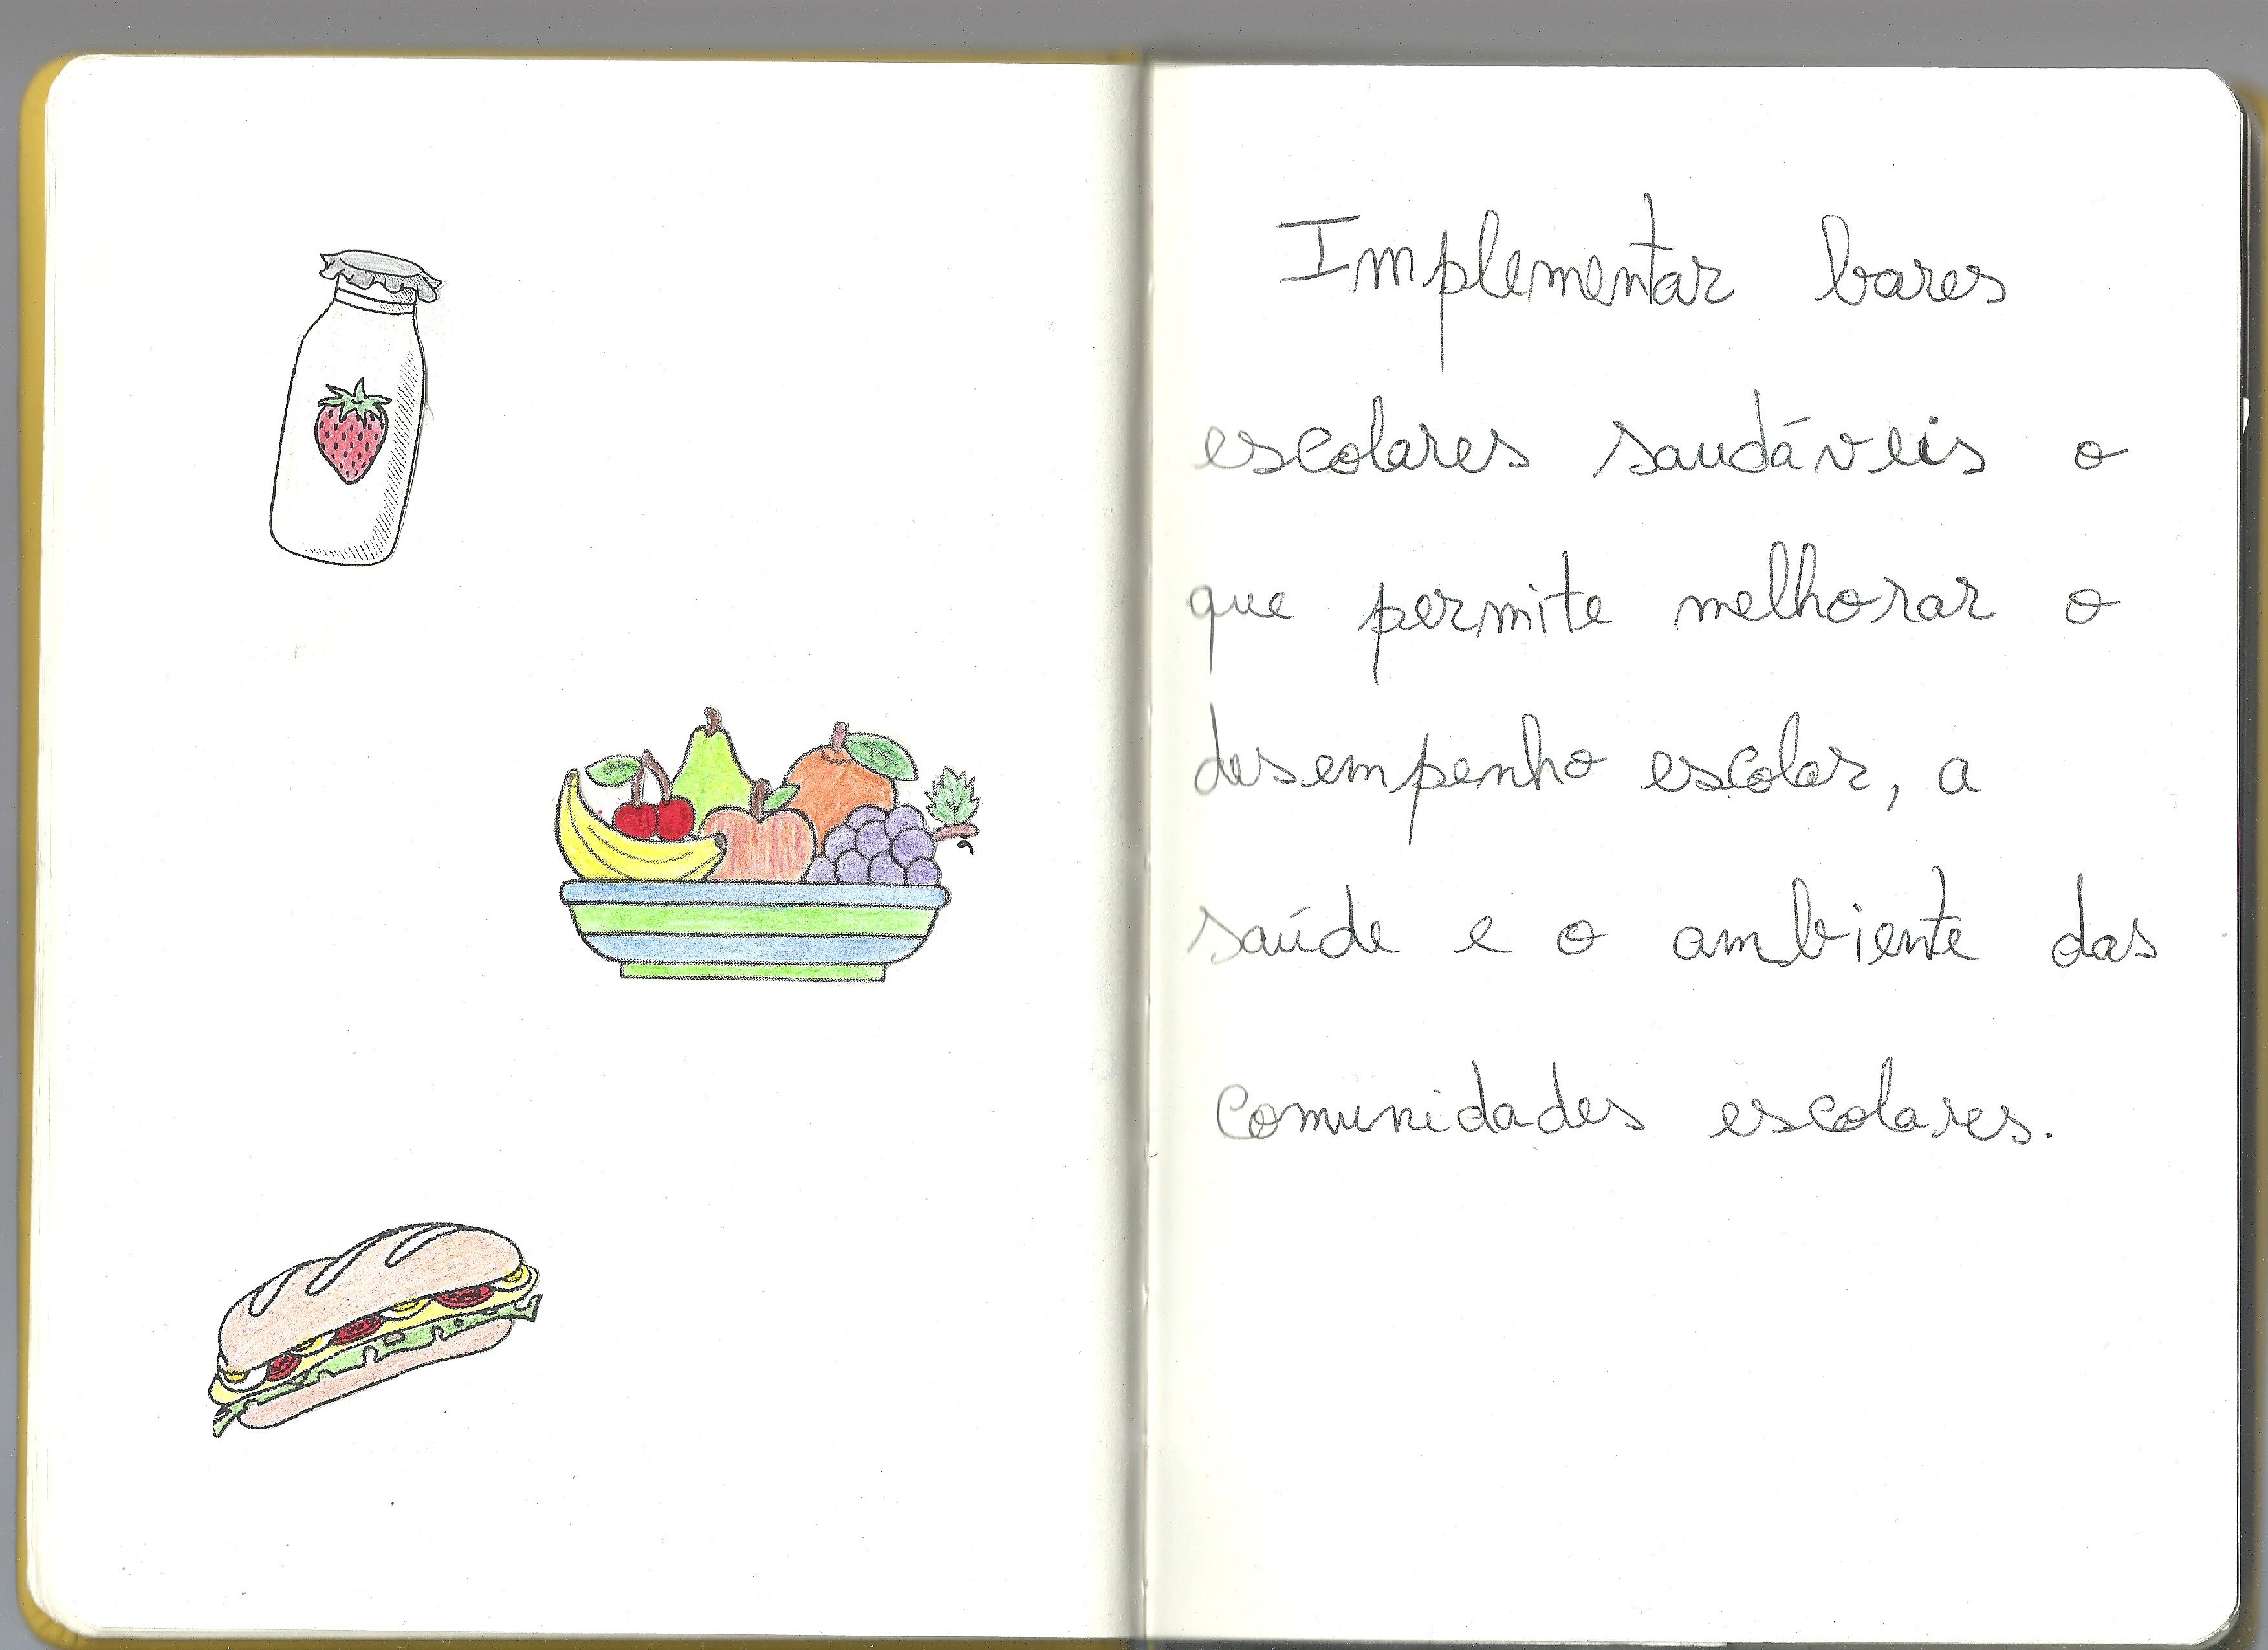 Implementar bares
escolares saudáveis o
que permite melhorar o
desempenho escolar, a
saúde e o ambiente das
comunidades escolares.